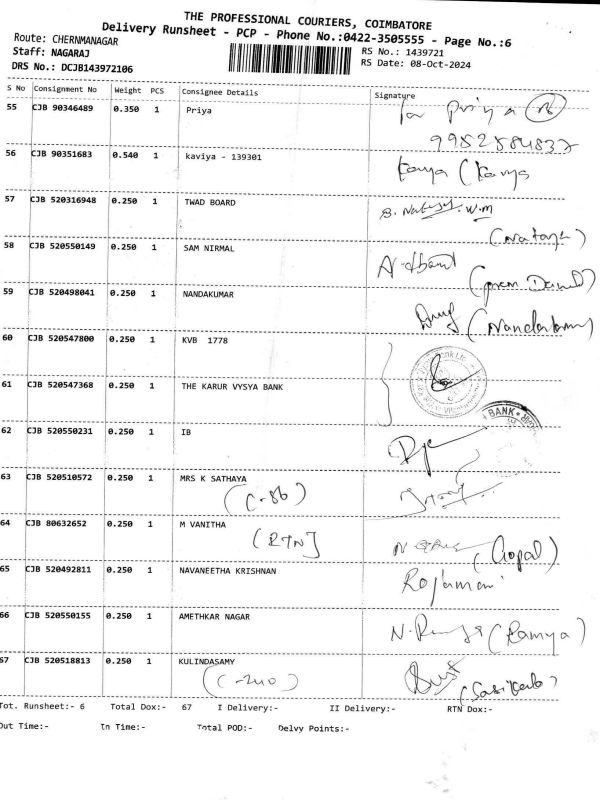 THE PROFESSIONAL COURIERS, COIMBATORE
Delivery Runsheet - PCP - Phone No.:0422-3505555 - Page No.:6
Route: CHERNMANAGAR
Staff: NAGARAJ
DRS No.: DCJB143972106
RS No.: 1439721
RS Date: 08-Oct-2024
S No Consignment No Weight PCS Consignee Details Signature
55 CJB 90346489 0.350 1 Priya for Priya
9952584837
56 CJB 90351683 0.540 1 kaviya - 139301
57 CJB 520316948 0.250 1 TWAD BOARD
58 CJB 520550149 0.250 1 SAM NIRMAL
59 CJB 520498041 0.250 1 NANDAKUMAR
60 CJB 520547800 0.250 1 KVB 1778
61 CJB 520547368 0.250 1 THE KARUR VYSYA BANK
BANK
62 CJB 520550231 0.250 1 IB
63 CJB 520510572 0.250 1 MRS K SATHAYA
(C-86)
64 CJB 80632652 0.250 1 M VANITHA
[RTN] (Gopal)
65 CJB 520492811 0.250 1 NAVANEETHA KRISHNAN Rojamani
66 CJB 520550155 0.250 1 AMETHKAR NAGAR (Ramya)
67 CJB 520518813 0.250 1 KULINDASAMY
Tot. Runsheet:- 6 Total Dox:- 67 I Delivery:- II Delivery:- RTN Dox:-
Out Time:- In Time:- Total POD:- Delvy Points:-